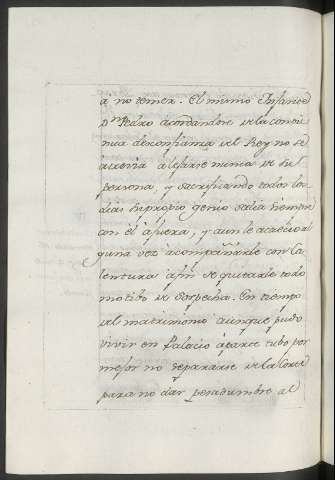 a no temer. El mismo Infante
Dn Pedro acordandose de la conti
nua desconfianza del Rey no se
atrevia a fiarse nunca de su
persona, y sacrificando todos los
dias su propio genio salia siempre
con el afuera, y aun le acaeció al
guna vez acompañarle con ca
lentura afin de quitarle todo
motibo de sospecha. En tiempo
del matrimonio aunque pudo
vivir en Palacio áparte tubo por
mejor no separarse de la Corte
para no dar pesadumbre al